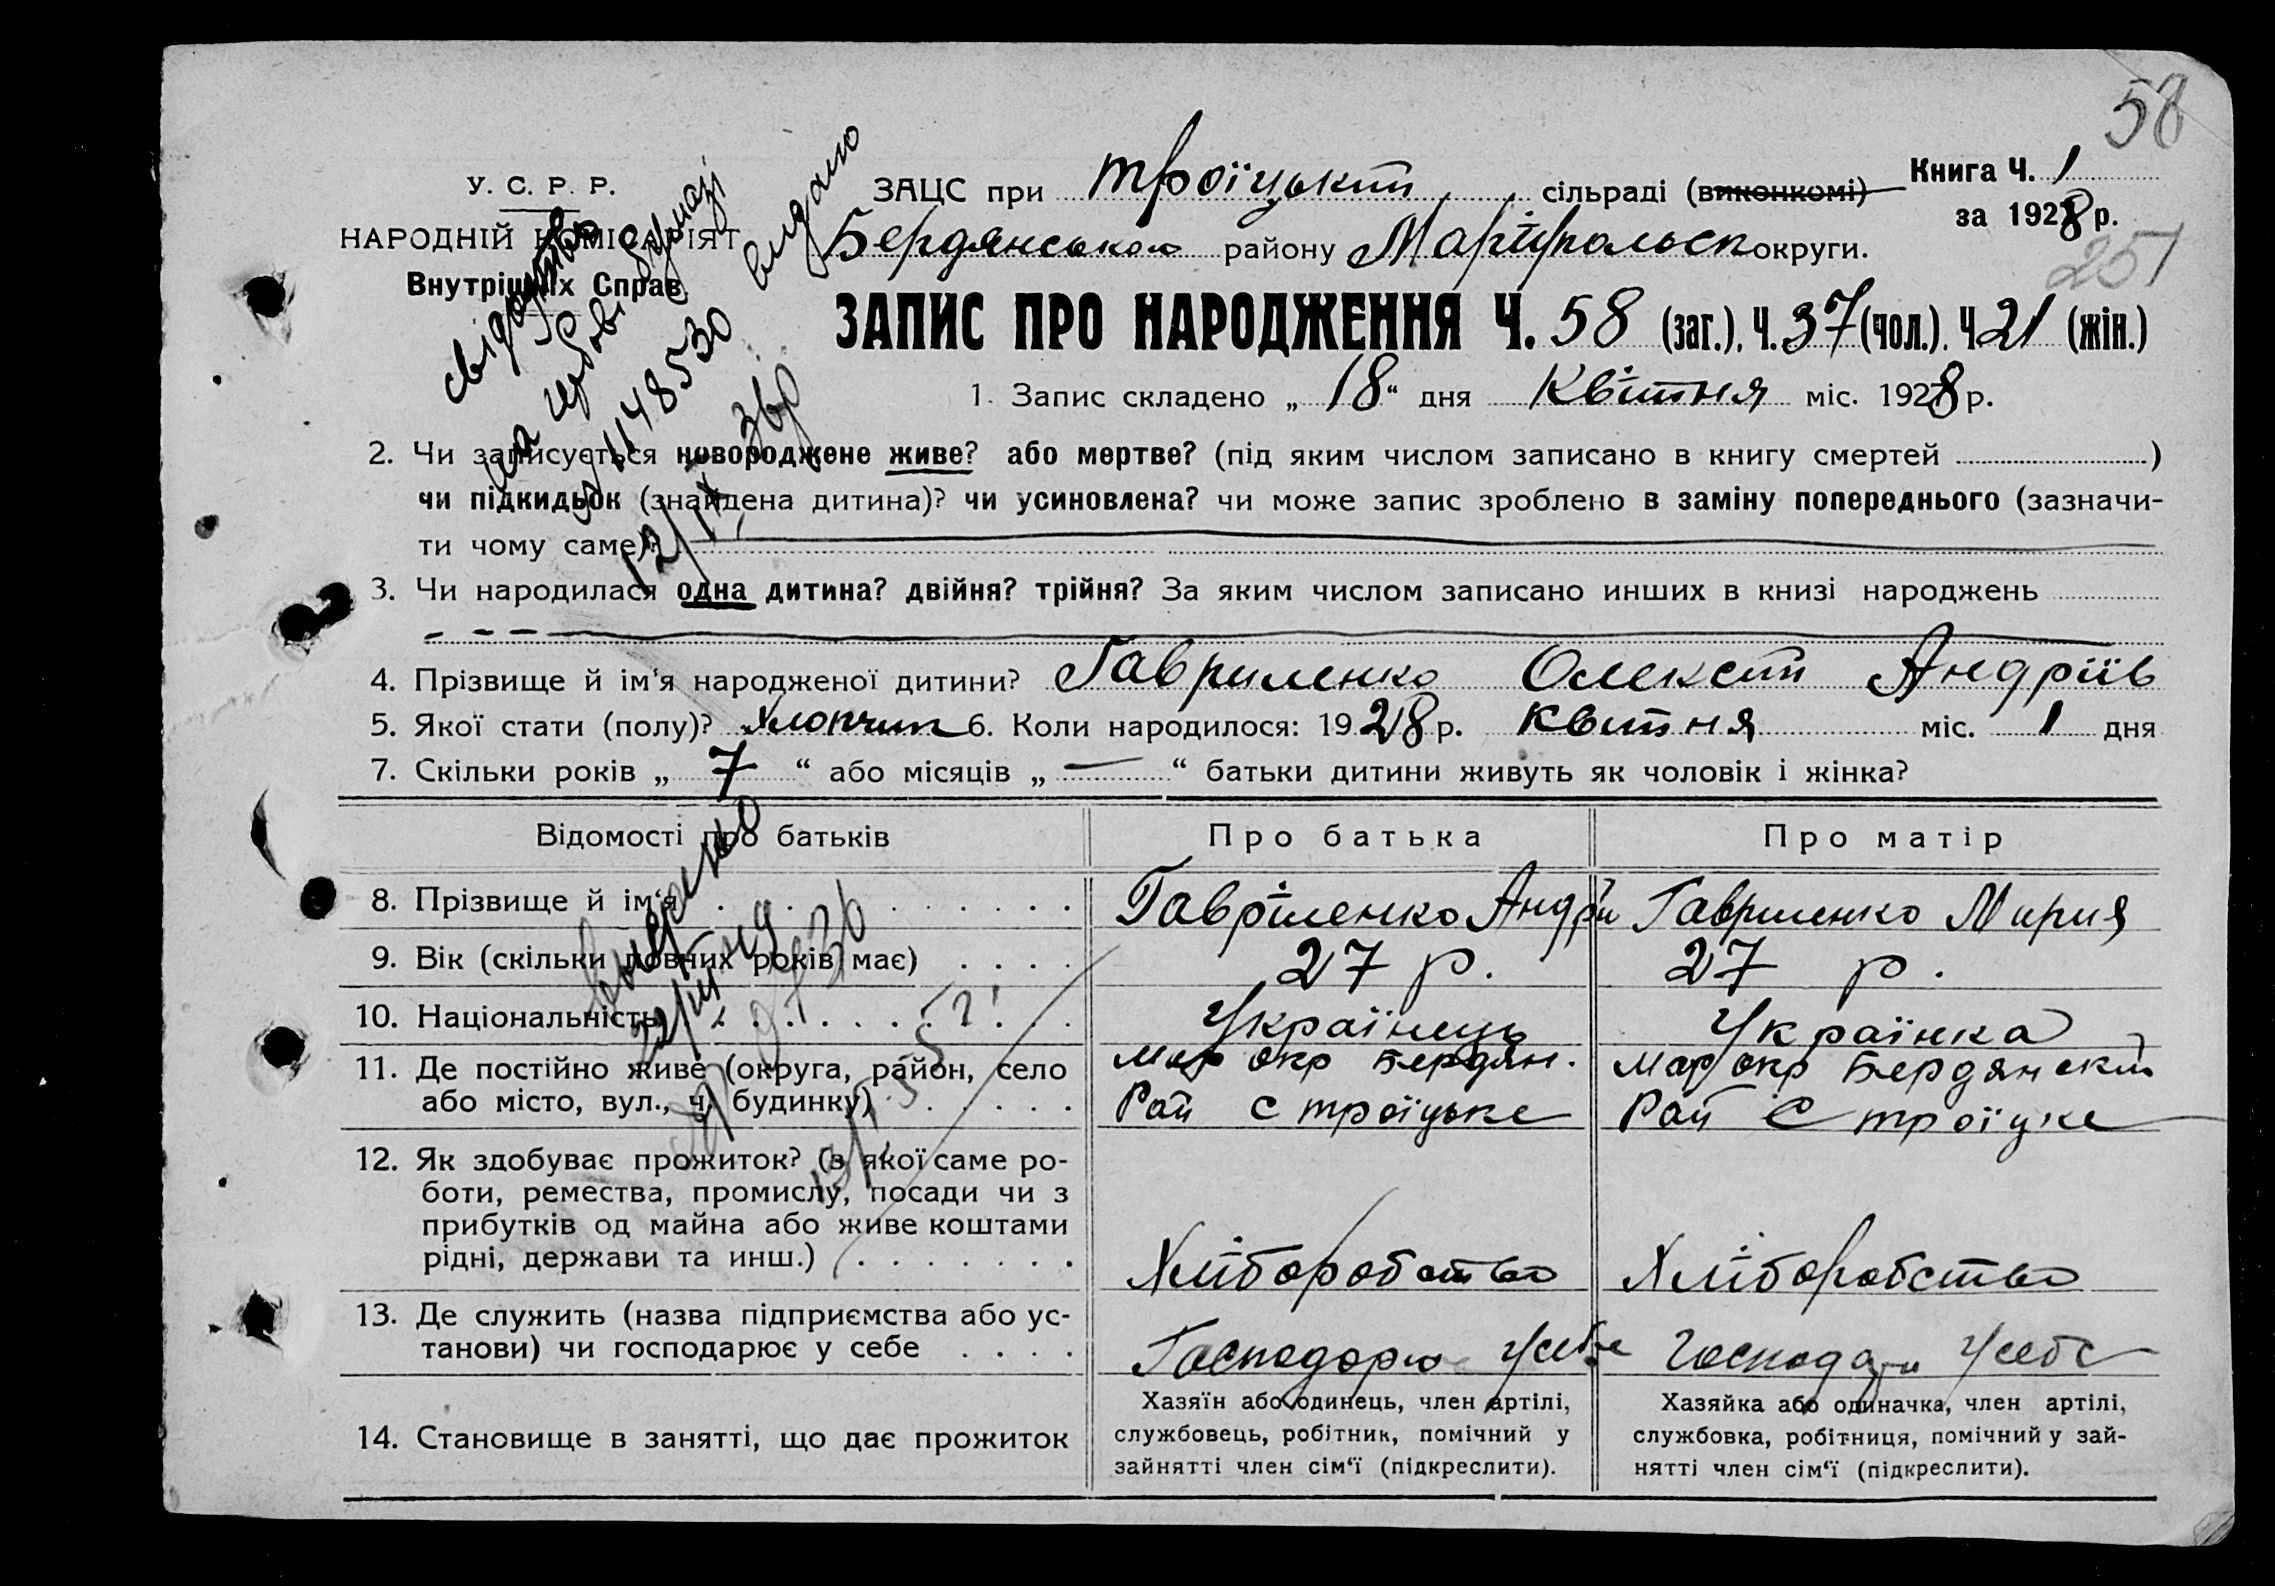 58
У. С. Р. Р.
НАРОДНІЙ КОМІСАРІЯТ
Внутрішніх Справ
свідоцтво
на гербові бумазі
1148530 видано
12/IX 36р
ЗАЦС при Троїцькій сільраді (виконкомі)
Книга Ч. 1
за 1928 р.
Бердянськог району Маріупольськ округи.
251
ЗАПИС ПРО НАРОДЖЕННЯ Ч. 58 (заг.), Ч. 37 (чол.), Ч 21 (жін.)
1. Запис складено „ 18 “ дня Квітня міс. 1928 р.
2. Чи записується новороджене живе? або мертве? (під яким числом записано в книгу смертей )
чи підкидьок (знайдена дитина)? чи усиновлена? чи може запис зроблено в заміну попереднього (зазначи-
ти чому саме)?
3. Чи народилася одна дитина? двійня? трійня? За яким числом записано инших в книзі народжень
4. Прізвище й ім'я народженої дитини? Гавриленко Олексій Андріїв
5. Якої стати (полу)? Хлопчик 6. Коли народилося: 1928 р. Квітня міс. 1 дня
7. Скільки років „ 7 “ або місяців „ — “ батьки дитини живуть як чоловік і жінка?
Відомості про батьків
Про батька
Про матір
8. Прізвище й ім'я
Гавріленко Андрій
Гавриленко Мария
9. Вік (скільки повних років має)
27 р.
27 р.
10. Національність
Українець
Українка
11. Де постійно живе (округа, район, село
або місто, вул., ч. будинку)
Мар окр Бердян.
Рай с Троїцьке
Мар окр Бердянский
Рай С Троїцке
12. Як здобуває прожиток? (з якої саме ро-
боти, ремества, промислу, посади чи з
прибутків од майна або живе коштами
рідні, держави та инш.)
Хліборобство
Хліборобство
13. Де служить (назва підприємства або ус-
танови) чи господарює у себе
Господорює Усебе
Господари Усебе
14. Становище в занятті, що дає прожиток
Хазяїн або одинець, член артілі,
службовець, робітник, помічний у
зайнятті член сім'ї (підкреслити).
Хазяйка або одиначка, член артілі,
службовка, робітниця, помічний у зай-
нятті член сім'ї (підкреслити).